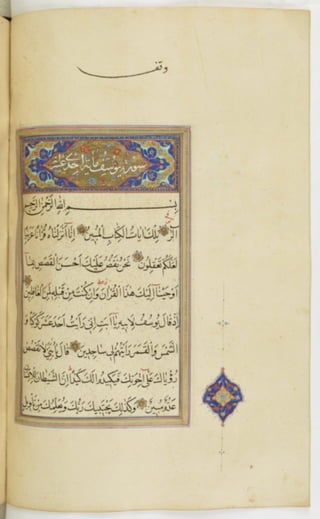 وقف
سورة يوسف مائة احدى عشر
بسم الله الرحمن الرحيم
الر تلك ايات الكتاب المبين انا انزلناه قرانا عربيا
لعلكم تعقلون نحن نقص عليك احسن القصص بما
اوحينا اليك هذا القران وان كنت من قبله لمن الغافلين
اذ قال يوسف لابيه يا ابت انى رأيت احد عشر كوكبا و
الشمس والقمر رأيتهم لى ساجدين قال يا بنى لا تقصص
رؤياك على اخوتك فيكيدوا لك كيدا ان الشيطان للانسان
عدو مبين وكذلك يجتبيك ربك ويعلمك من تأويل